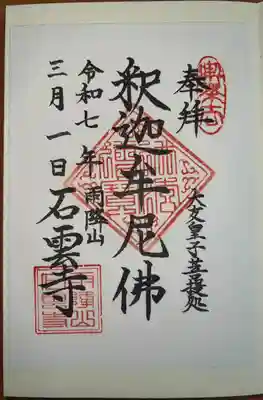 奉拝
大友皇子菩提処
釈迦牟尼佛
雨降山
石雲寺
令和七年
三月一日